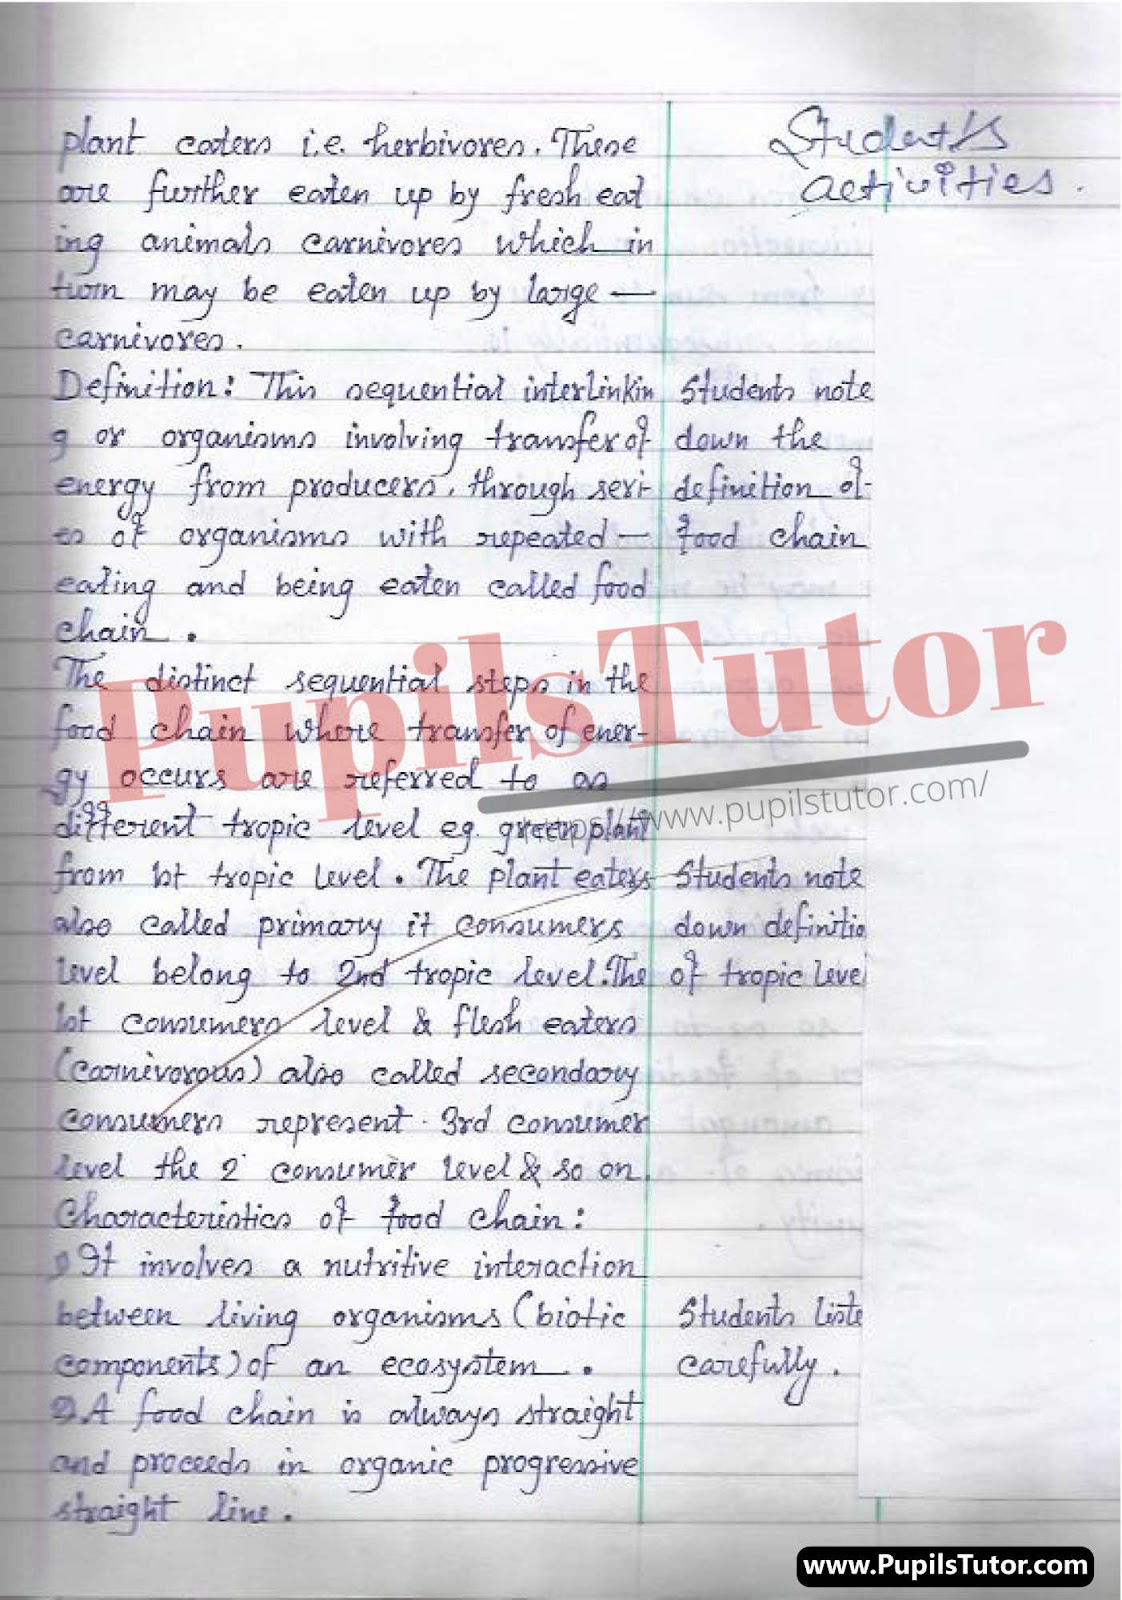 Student's
activities.
plant eaters i.e. herbivores. These
are further eaten up by fresh eat
ing animals carnivores which in
turn may be eaten up by large —
carnivores.
Definition: This sequential interlinkin
g or organisms involving transfer of
energy from producers, through seri-
es of organisms with repeated —
eating and being eaten called food
chain.
Students note
down the
definition of
food chain
The distinct sequential steps in the
food chain where transfer of ener-
gy occurs are referred to as
different tropic level eg. green plant
from 1st tropic level. The plant eaters
also called primary it consumers
level belong to 2nd tropic level. The
1st consumers level & flesh eaters
(carnivorous) also called secondary
consumers represent. 3rd consumer
level the 2 consumer level & so on.
Students note
down definitio
of tropic leve
Characteristics of food chain:
1) It involves a nutritive interaction
between living organisms (biotic
components) of an ecosystem.
Students liste
carefully.
2) A food chain is always straight
and proceeds in organic progressive
straight line.
PupilsTutor
https://www.pupilstutor.com/
www.PupilsTutor.com